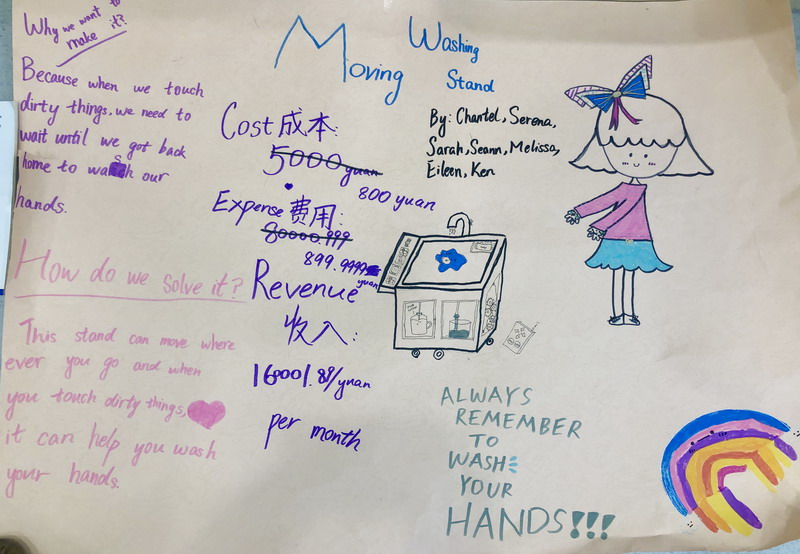 Why we want to
make it?
Because when we touch
dirty things, we need to
wait until we got back
home to wash our
hands.
How do we solve it?
This stand can move where
ever you go and when
you touch dirty things,
it can help you wash
your hands.
Moving Washing
Stand
By: Chantel, Serena,
Sarah, Seann, Melissa,
Eileen, Ken
Cost 成本:
5000 yuan
800 yuan
Expense 费用:
80000.999
899.9999
yuan
Revenue
收入:
160001.89/yuan
per month
ALWAYS
REMEMBER
TO
WASH
YOUR
HANDS!!!